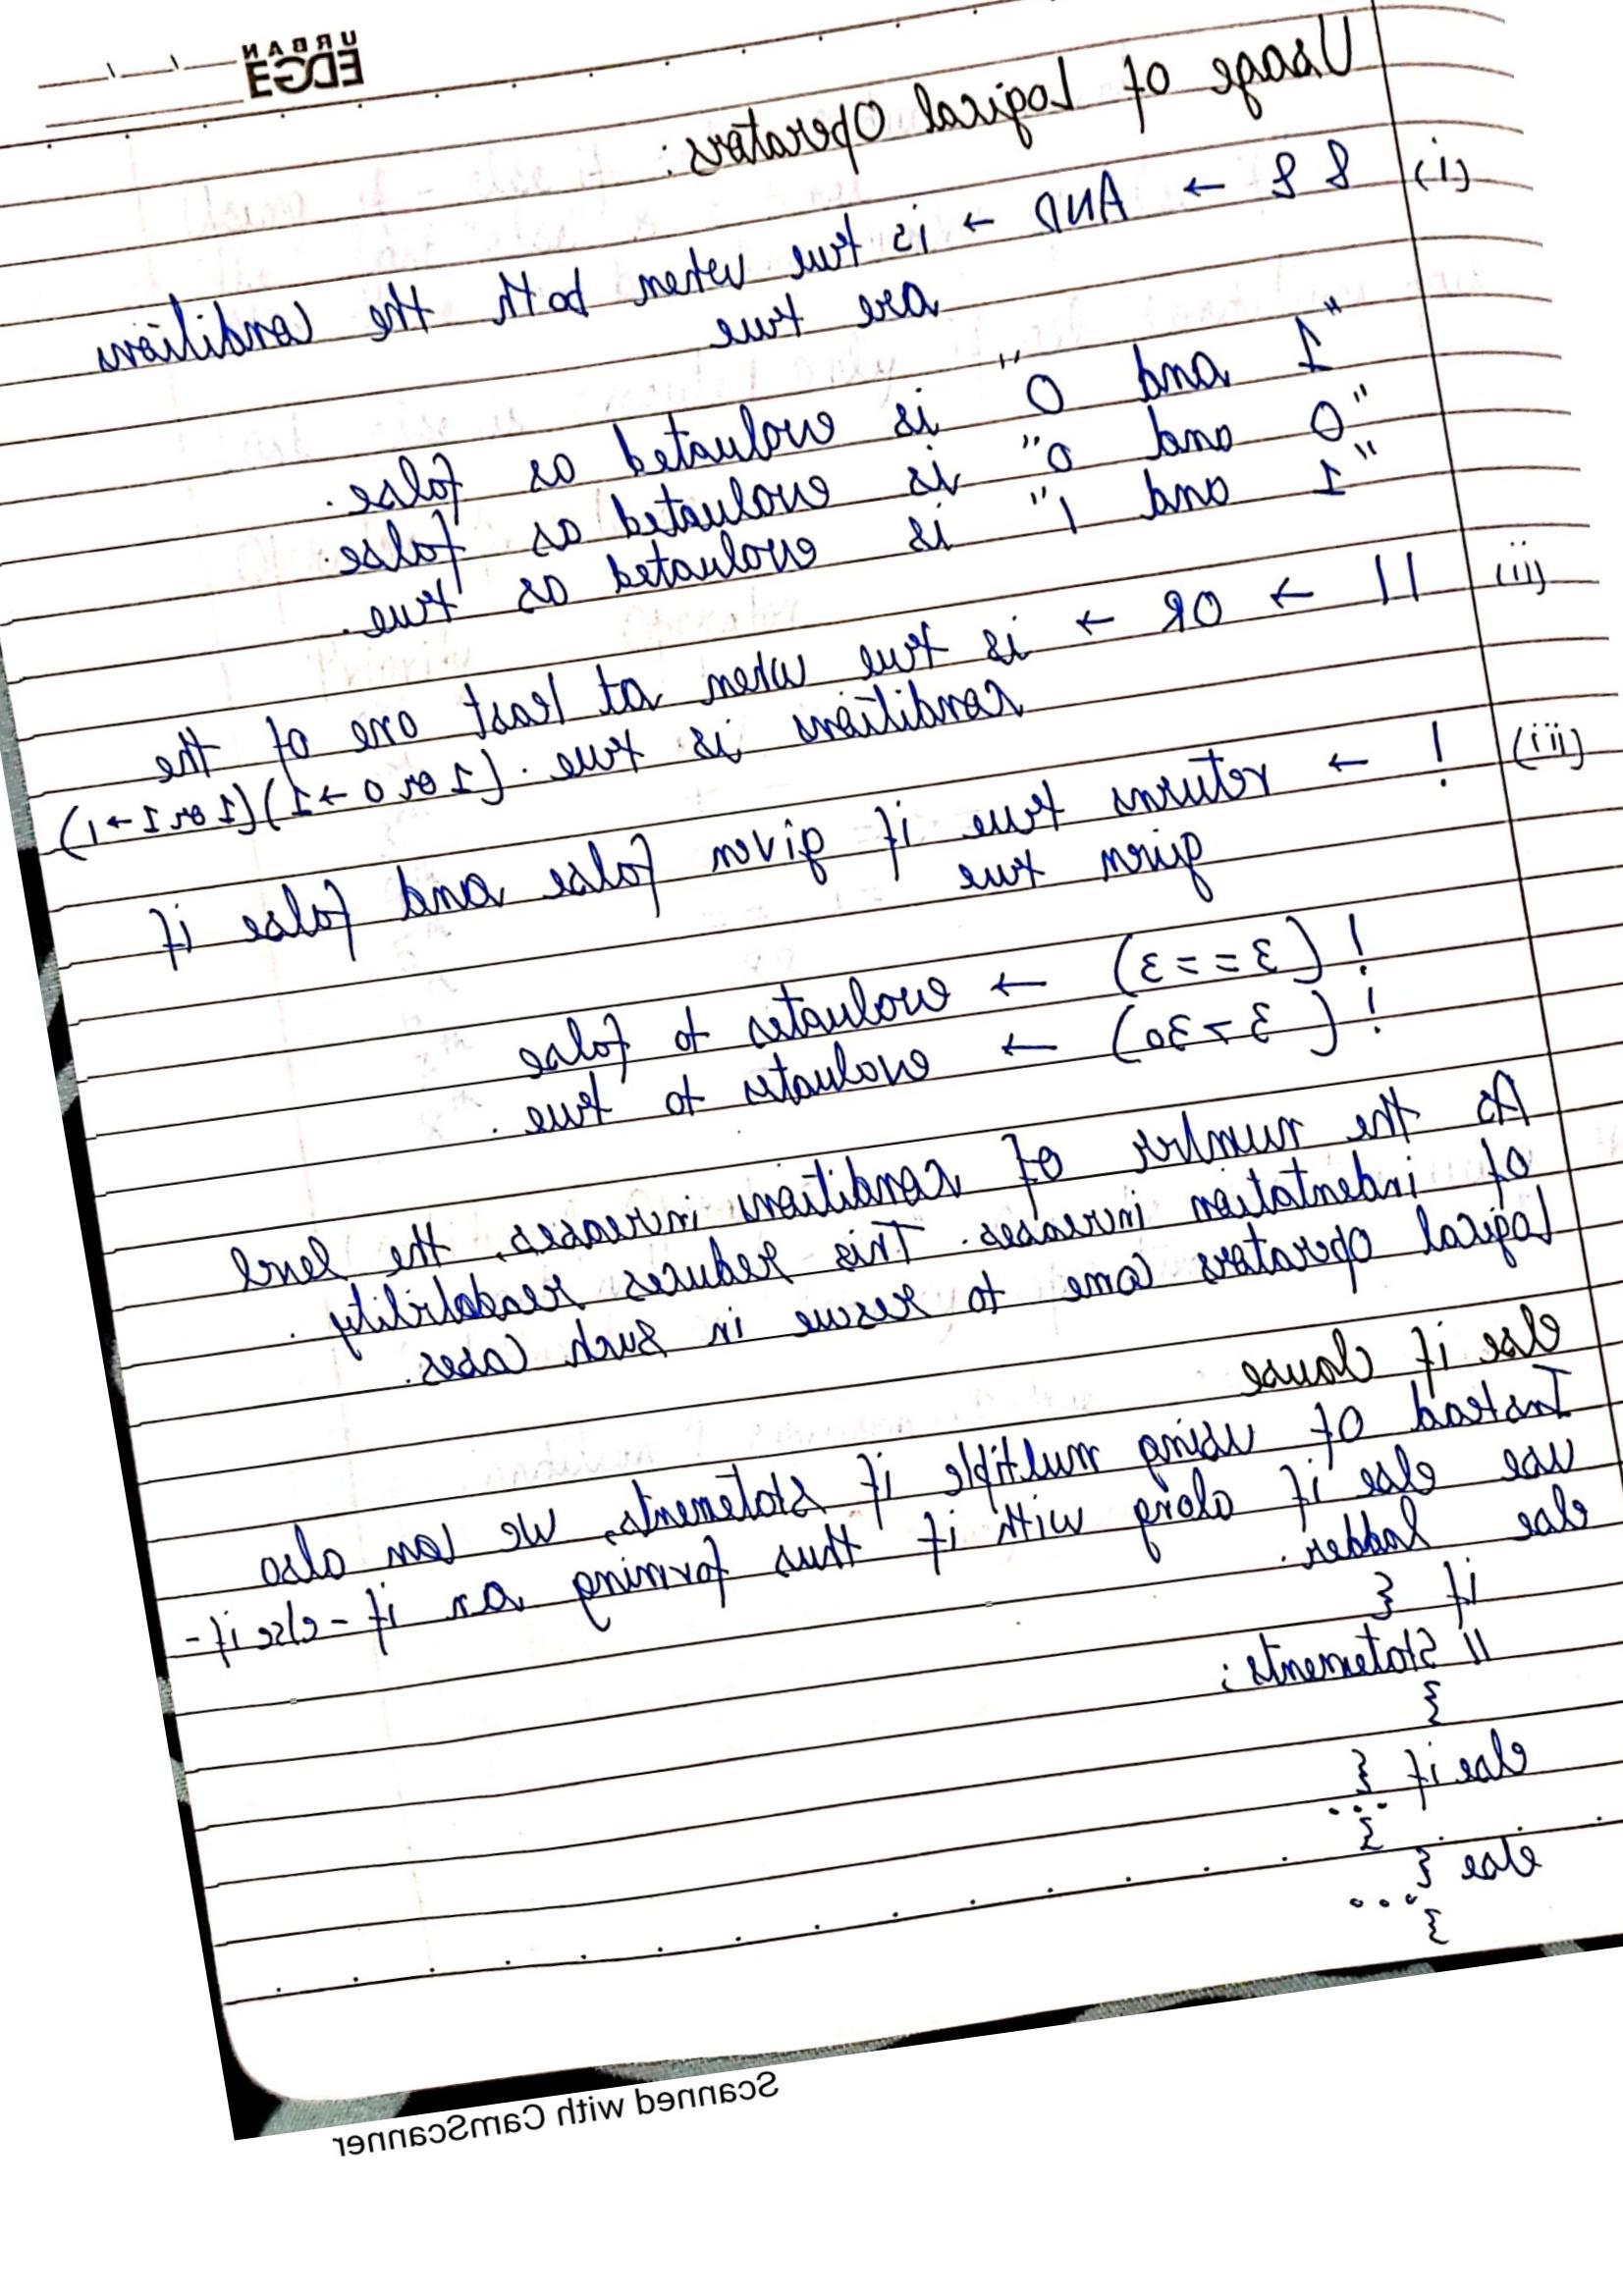 URBAN
EDGE
Usage of Logical Operators:
(i) && → AND → is true when both the conditions
are true
"1 and 0" is evaluated as false.
"0 and 0" is evaluated as false.
"1 and 1" is evaluated as true.
(ii) || → OR → is true when at least one of the
conditions is true. (1 or 0 → 1) (1 or 1 → 1)
(iii) ! → returns true if given false and false if
given true
!(3==3) → evaluates to false
!(3>30) → evaluates to true.
As the number of conditions increases, the level
of indentation increases. This reduces readability.
Logical operators come to rescue in such cases.
else if clause
Instead of using multiple if statements, we can also
use else if along with if thus forming an if-else if-
else ladder.
if {
// Statements;
}
else if {
...
}
else {
...
}
Scanned with CamScanner